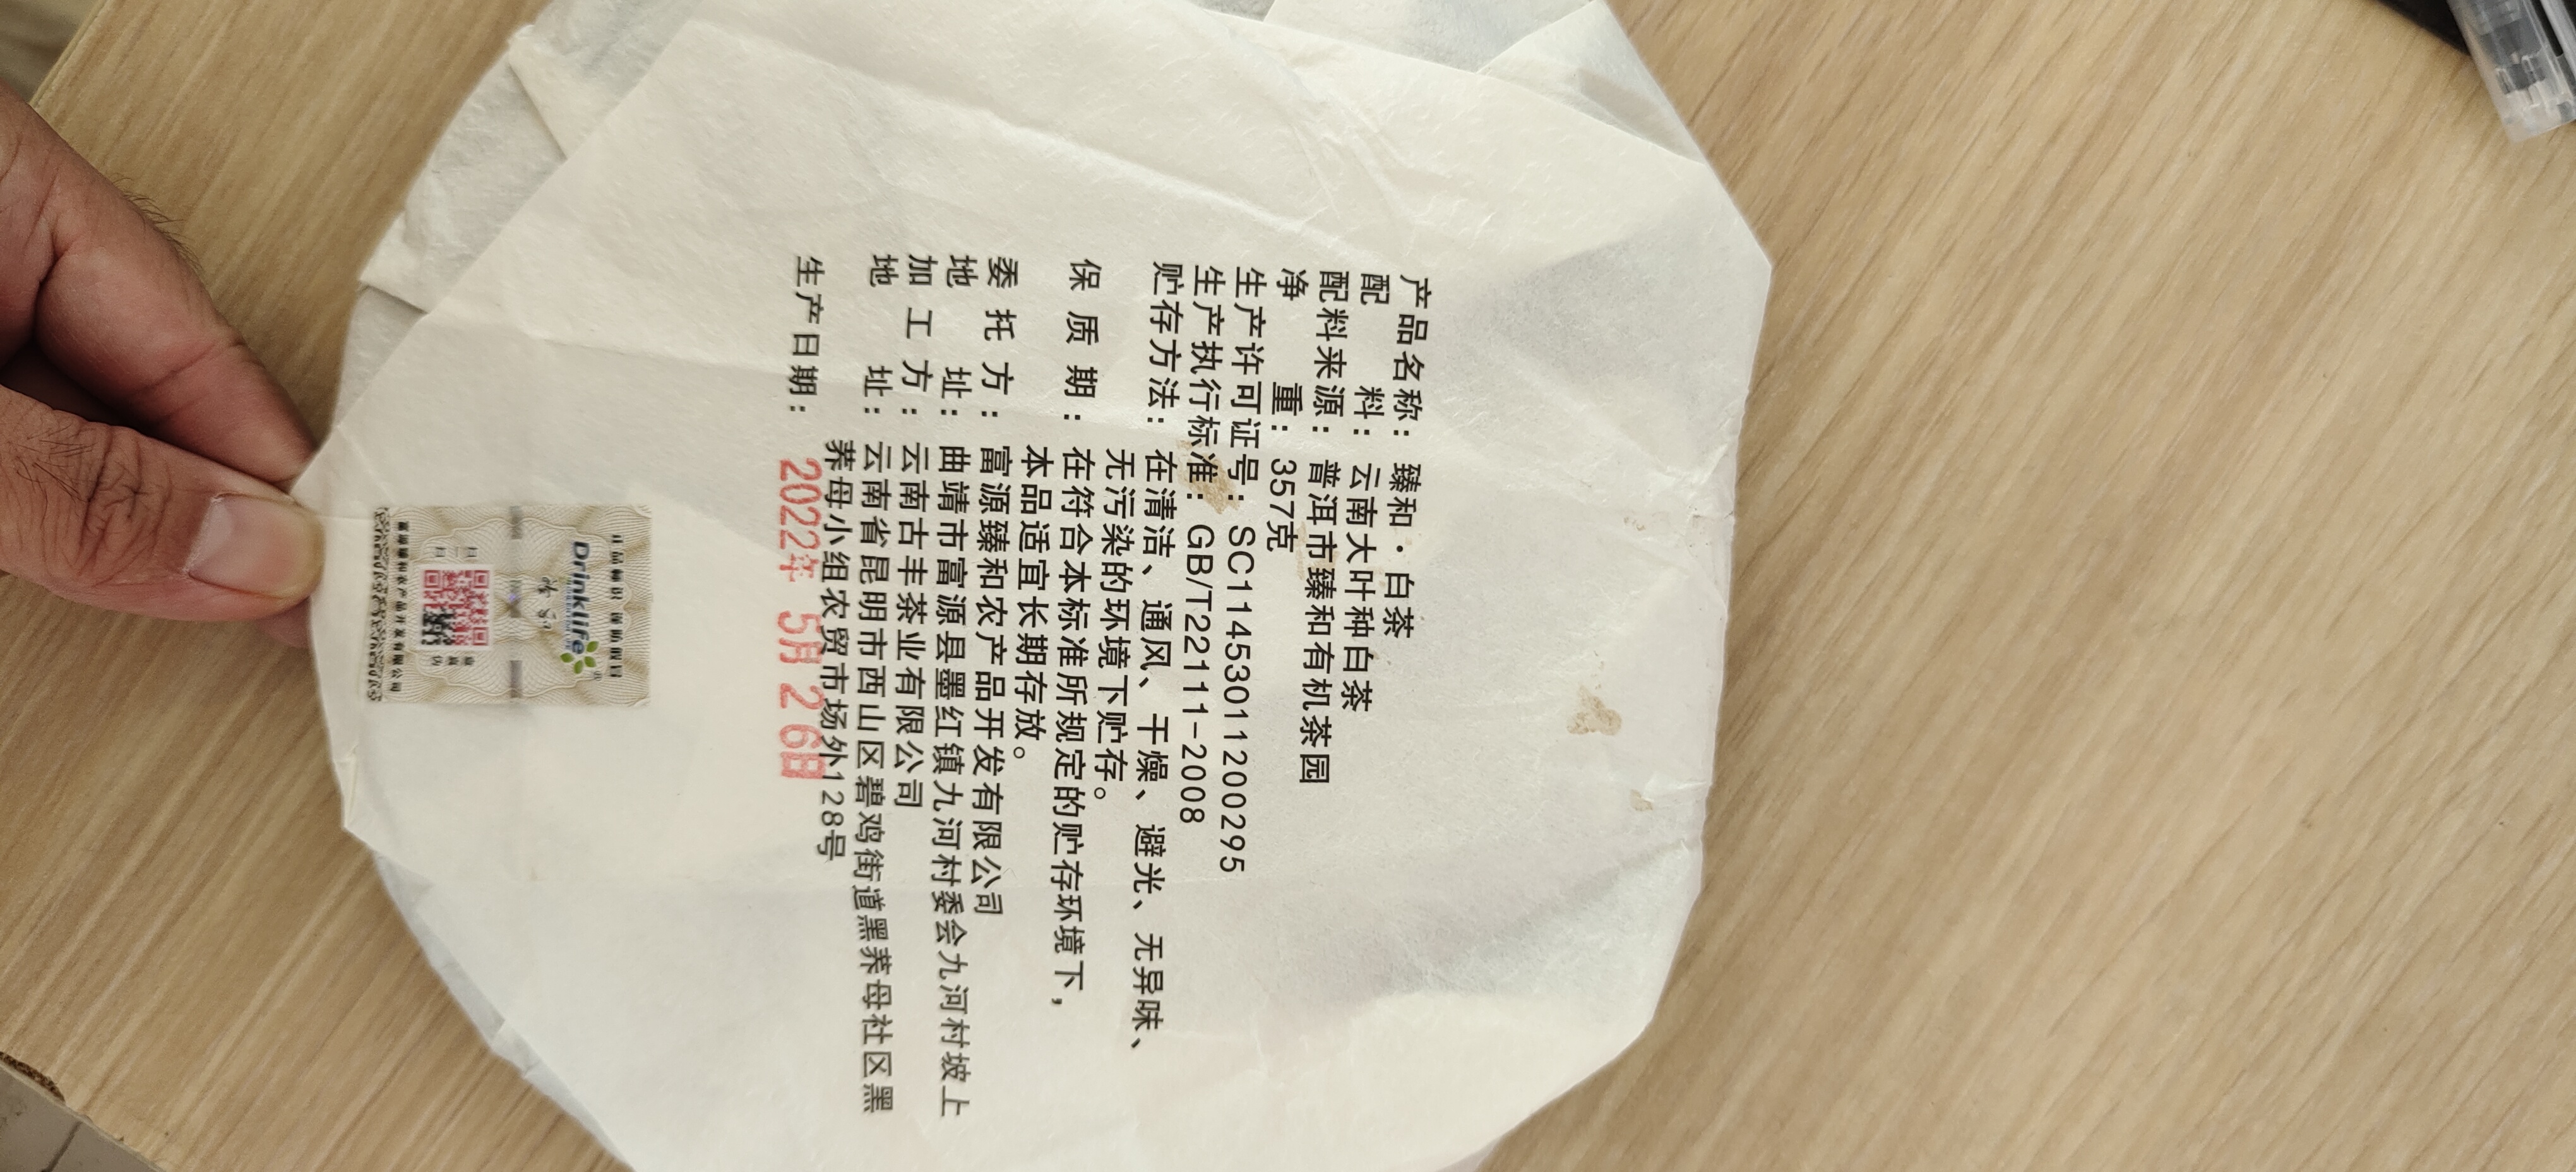 产品名称：臻和·白茶
配料：云南大叶种白茶
配料来源：普洱市臻和有机茶园
净重：357克
生产许可证号：SC11453011200295
生产执行标准：GB/T22111-2008
贮存方法：在清洁、通风、干燥、避光、无异味、
无污染的环境下贮存。
保质期：在符合本标准所规定的贮存环境下，
本品适宜长期存放。
委托方：富源臻和农产品开发有限公司
地址：曲靖市富源县墨红镇九河村委会九河村坡上
加工方：云南古丰茶业有限公司
地址：云南省昆明市西山区碧鸡街道黑荞母社区黑
荞母小组农贸市场外128号
生产日期：2022年 5月 26日
正品标识 谨防假冒
Drinklife
扫一扫
富源臻和农产品开发有限公司